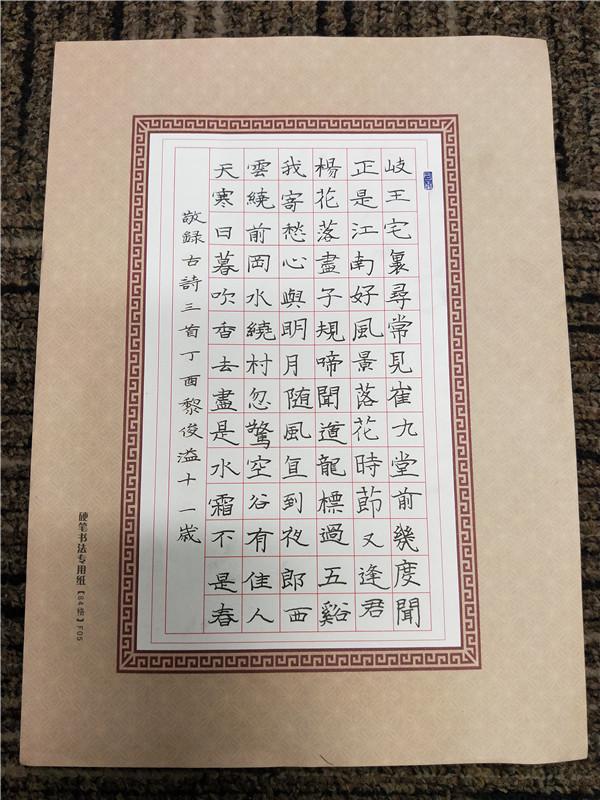 岐王宅裏尋常見崔九堂前幾度聞
正是江南好風景落花時節又逢君
楊花落盡子規啼聞道龍標過五谿
我寄愁心與明月随風直到夜郎西
雲繞前岡水繞村忽驚空谷有佳人
天寒日暮吹香去盡是水霜不是春
敬録古詩三首丁酉黎俊溢十一歲
硬笔书法专用纸【84格】F05